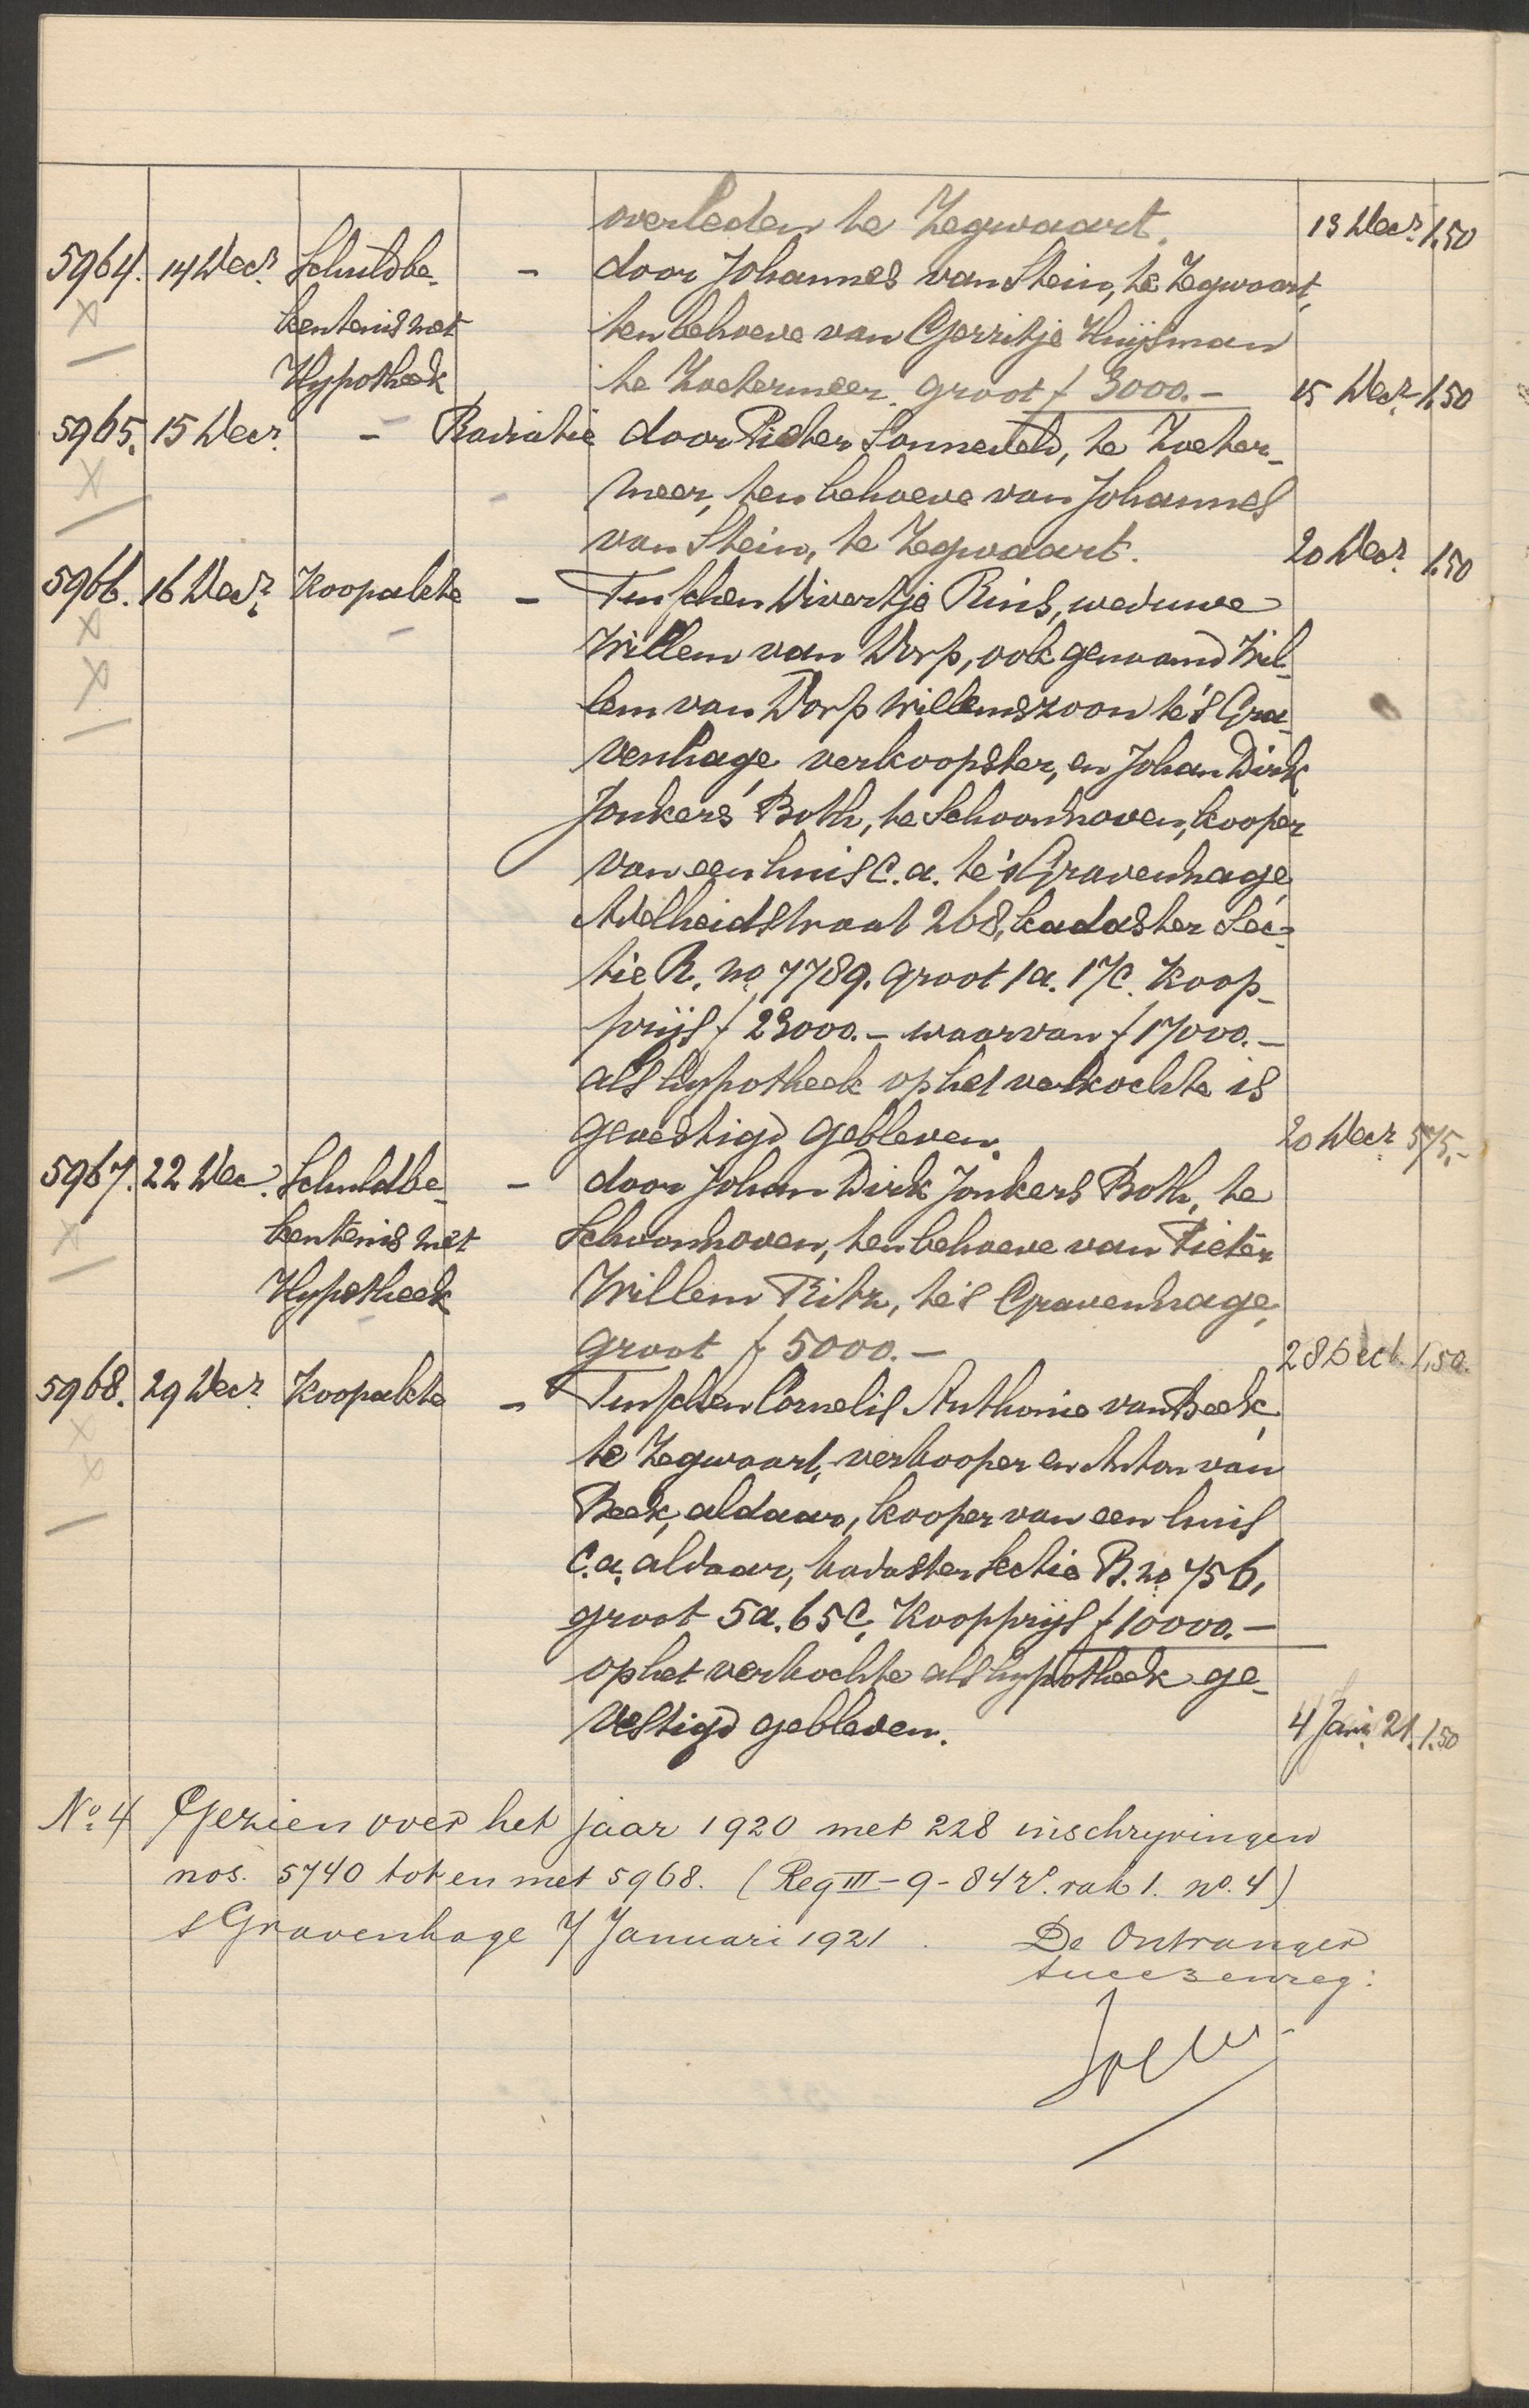 overleden te Zegwaart. 13 Decr. 1,50
5964. 14 Decr. Schuldbe- – door Johannes van Stein, te Zegwaart,
kentenis met ten behoeve van Gerritje Huijsman
Hypotheek te Zoetermeer. groot f 3000.– 15 Decr. 1,50
5965. 15 Decr. – Radiatie door Pieter Sonneveld, te Zoeter-
meer, ten behoeve van Johannes
van Stein, te Zegwaart. 20 Decr. 1,50
5966. 16 Decr. Koopakte – Tusschen Divertje Rins, weduwe
Willem van Dorp, ook genaamd Wil-
lem van Dorp Willemszoon te 's Gra-
venhage, verkoopster, en Johan Dirk
Jonkers Both, te Schoonhoven, kooper
van een huis c.a. te 's Gravenhage,
Adelheidstraat 268, kadaster Sec-
tie R. no. 7789. groot 1 a. 17 c. Koop-
prijs f 23000.– waarvan f 17000.–
als hypotheek op het verkochte is
gevestigd gebleven. 20 Decr. 575,–
5967. 22 Dec. Schuldbe- – door Johan Dirk Jonkers Both, te
kentenis met Schoonhoven, ten behoeve van Pieter
Hypotheek Willem Ritz, te 's Gravenhage,
groot f 5000.– 28 Dec 1,50.
5968. 29 Decr. Koopakte – Tusschen Cornelis Anthonie van Beek,
te Zegwaart, verkooper en Anton van
Beek, aldaar, kooper van een huis
c.a. aldaar, kadaster Sectie B. no 756,
groot 5 a. 65 c. Koopprijs f 10000.–
op het verkochte als hypotheek ge-
vestigd gebleven. 4 Jan. 21. 1.50
No. 4 Gezien over het jaar 1920 met 228 inschryvingen
nos. 5740 tot en met 5968. (Reg III – 9 – 84 vo. vak 1. no. 4)
s Gravenhage 7 Januari 1921. De Ontvanger
succ en reg: